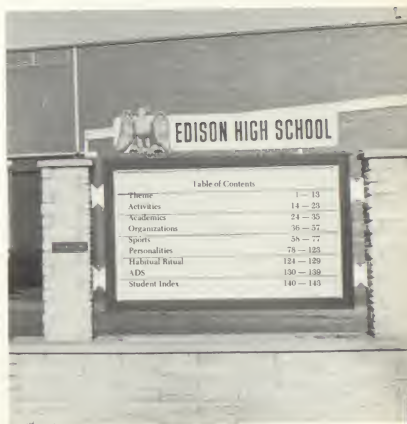 EDISON HIGH SCHOOL
Table of Contents
Theme 1 — 13
Activities 14 — 23
Academics 24 — 35
Organizations 36 — 57
Sports 58 — 77
Personalities 78 — 123
Habitual Ritual 124 — 129
ADS 130 — 139
Student Index 140 — 143